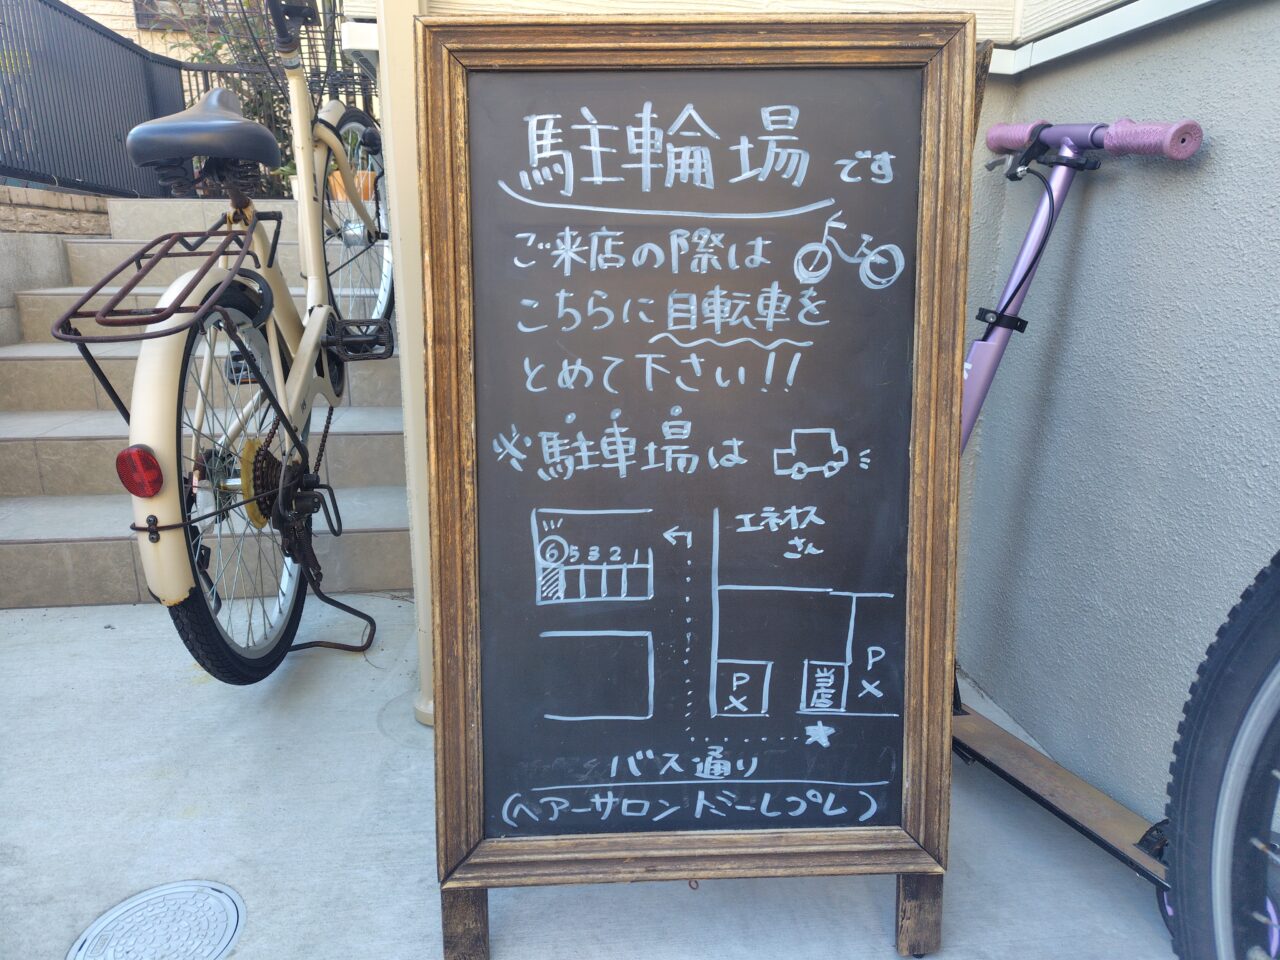 駐輪場です
ご来店の際は
こちらに自転車を
とめて下さい!!
※駐車場は
エネオス
さん
6 5 3 2 1
P
×
P
×
当店
バス通り
(ヘアーサロンドミールプレ)